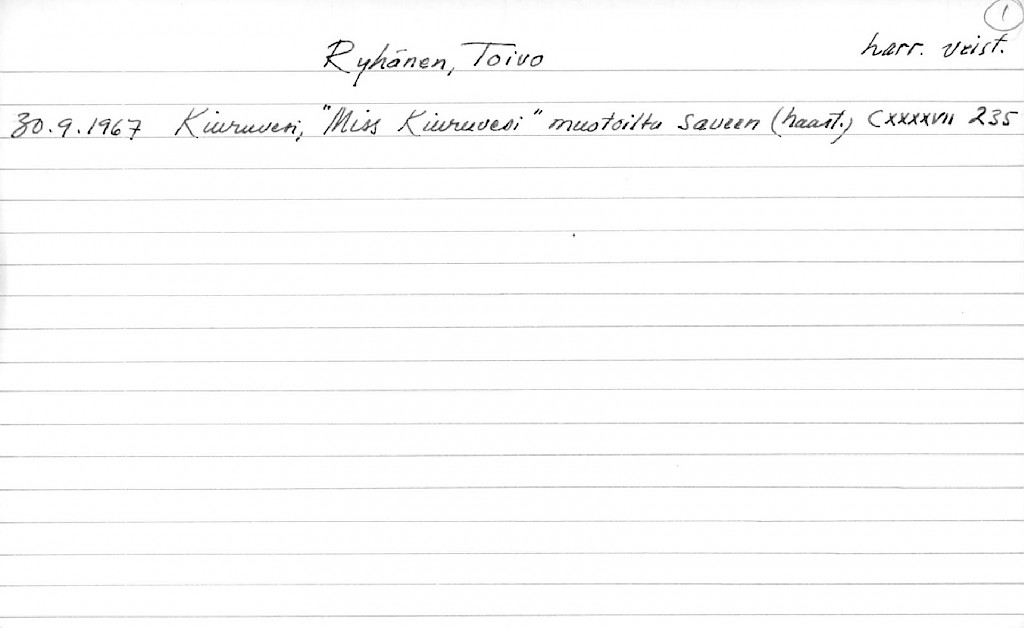 1
Ryhänen, Toivo harr. veist.
30.9.1967 Kiuruvesi, "Miss Kiuruvesi" muotoiltu saveen (haast.) CXXXXVII 235